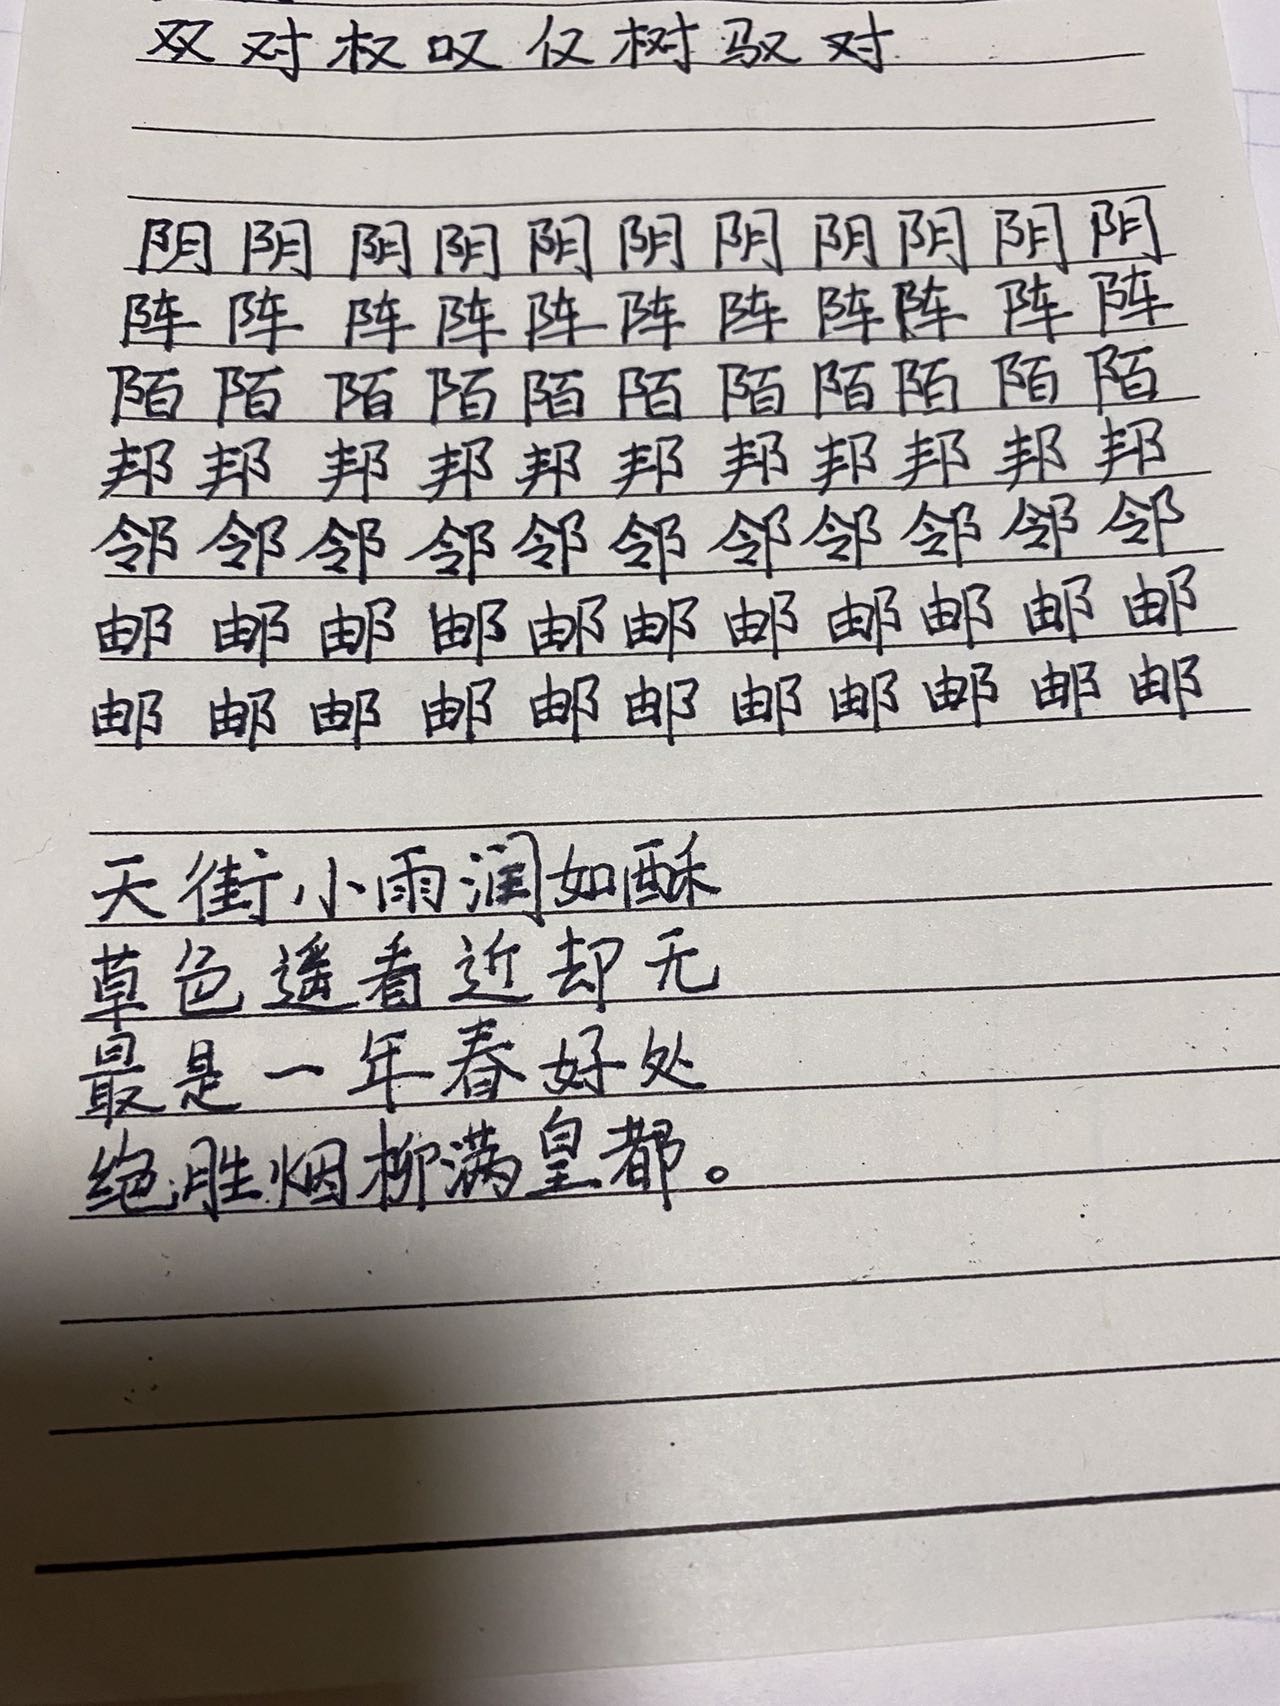 双对权叹仅树驭对
阴阴阴阴阴阴阴阴阴阴阴
阵阵阵阵阵阵阵阵阵阵阵
陌陌陌陌陌陌陌陌陌陌陌
邦邦邦邦邦邦邦邦邦邦邦
邻邻邻邻邻邻邻邻邻邻邻
邮邮邮邮邮邮邮邮邮邮邮
邮邮邮邮邮邮邮邮邮邮邮
天街小雨润如酥
草色遥看近却无
最是一年春好处
绝胜烟柳满皇都。